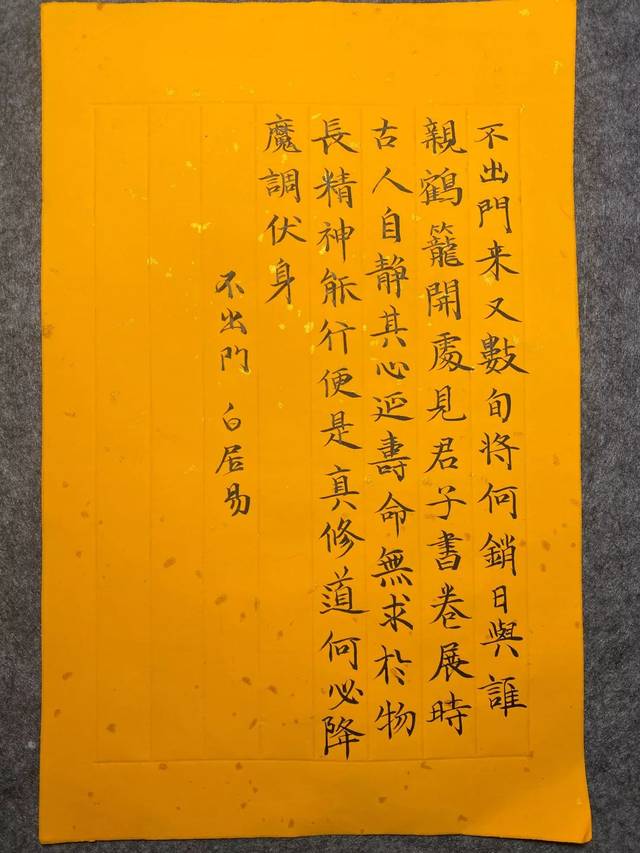 不出門来又數旬将何銷日與誰
親鶴籠開處見君子書卷展時
古人自靜其心延壽命無求於物
長精神能行便是真修道何必降
魔調伏身
不出門 白居易